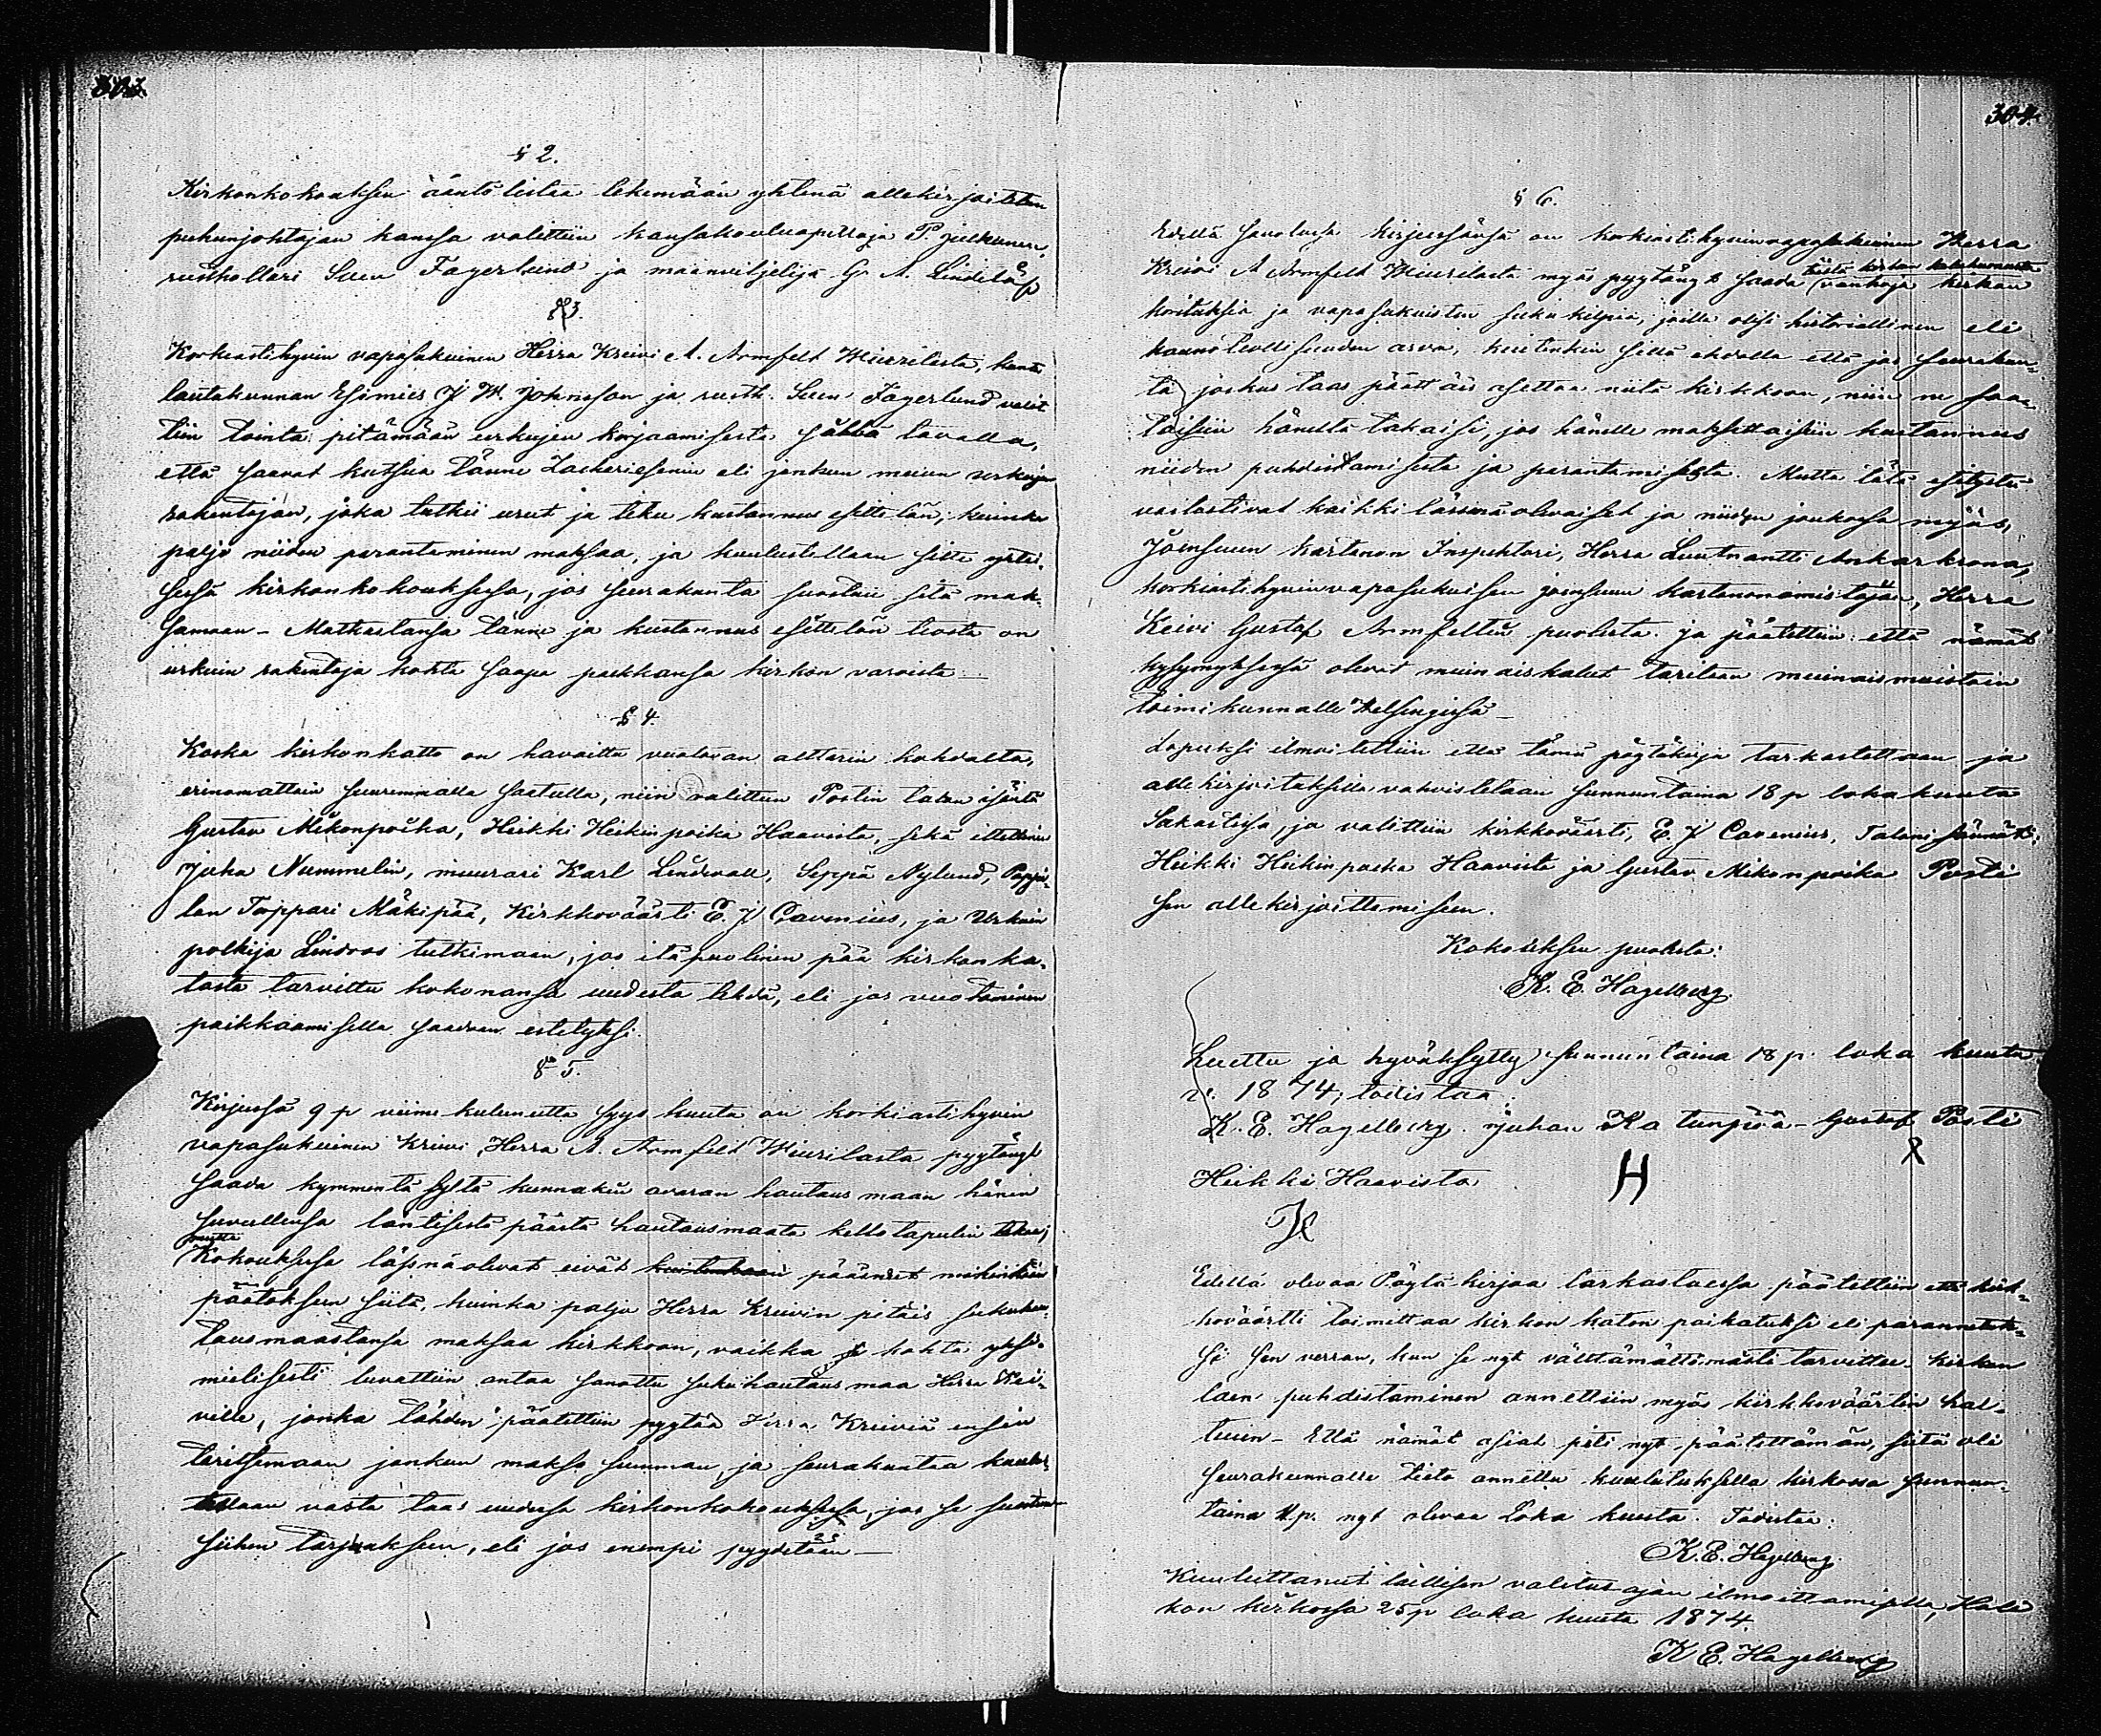 303.
§ 2.
Kirkonkokouksen ääntö listaa tekemään yhtenä allekirjoitetun
puheenjohtajan kanssa valittiin kansakoulunopettaja P.
rusthollari Sven Fagerlund ja maanviljelijä G. A. Lindelöf
§ 3.
Korkeastihyvin vapasukuinen Herra Kreivi A. Armfelt Wiurilasta, kunta
lautakunnan Esimies J. W. Johnsson ja rusth. Sven Fagerlund valit
tiin tointa pitämään urkujen korjaamisesta sillä tavalla,
että saavat kutsua tänne Zachariesenin eli jonkun muun urkujen
rakentajan, joka tutkii urut ja tekee kustannus esittelön, kuinka
paljo niiden parantaminen maksaa, ja kuulustellaan sitte yxtei-
sessä kirkonkokouksessa, jos seurakunta suostuu sitä mak-
samaan – Matkastansa tänne ja kustannus esittelön teosta on
urkuin rakentaja kohta saapa palkkansa kirkon varoista –
§ 4.
Koska kirkonkatto on havaittu vuotavan alttarin kohdalta,
erinomattain suuremmalla sateella, niin valittiin Postin talon isäntä
Gustav Mikonpoika, Heikki Heikinpoika Haavista, sekä itsellinen
Juha Nummelin, muurari Karl Lindevall, Seppä Nylund, Pappi-
lan Torppari Mäkipää, Kirkkoväärti E. J. Cavenius, ja Urkuin
polkija Lindroos tutkimaan, jos itäpuolinen pää kirkon ka-
tosta tarvittee kokonansa uudesta tehdä, eli jos vuotaminen
paikkaamisella saadaan estetyksi.
§ 5.
Kirjeessä 9 p viime kuluneetta syys kuuta on korkiastihyvin
vapasukuinen Kreivi, Herra A. Armfelt Wiurilasta pyytänyt
saada kymmentä syltä kunnakin avaran hautaus maan hänen
suvullensa läntisestä päästä hautausmaata kello tapulin takana;
mutta
Kokouksessa läsnäolevat eivät kuitenkaan päässeet mihinkään
päätökseen siitä, kuinka paljo Herra Kreivin pitäis sukuhau-
tausmaastansa maksaa kirkkoon, vaikka kohta yksi-
mielisesti luvattiin antaa sanottu sukuhautausmaa Herra Krei-
ville, jonka tähden päätettiin pyytää Herra Kreiviä ensin
taritsemaan jonkun makso summan, ja seurakuntaa kuulus-
tellaan vasta taas uudessa kirkonkokouksessa, jos se suostuu
siihen tarjoukseen, eli jos enempi pyydetään –
304.
§ 6.
Edellä sanotussa kirjeessänsä on korkiastihyvinvapasukuinen Herra
tästä kirkon kalukamarista
Kreivi A Armfelt Wiurilasta myös pyytänyt saada vanhoja kirkon
koristuksia ja vapasukuisten suku kilpiä, joilla olisi historiallinen eli
kaunotieollisuuden arvo, kuitenkin sillä ehdolla että jos seurakun-
ta joskus taas päättäis asettaa niitä kirkkoon, niin ne saa-
taisiin häneltä takaisi, jos hänelle maksettaisiin kustannus
niiden puhdistamisesta ja parantamisesta. Mutta tätä esitystä
vastustivat kaikki läsnä olevaiset ja niiden joukossa myös,
Joensuun kartanon Inspehtori, Herra Luutnantti Ankarkrona,
korkiastihyvinvapasukuisen Joensuun kartanonomistajan, Herra
Kreivi Gustaf Armfeltin puolesta. ja päätettiin: että nämät
kysymyksessä olevat muinaiskalut taritaan muinaismuistoin
toimikunnalle Helsingissä –
Lopuksi ilmoitettiin että tämä pöytäkirja tarkastettaan ja
allekirjoituksilla vahvistetaan sunnuntaina 18 p lokakuuta
Sakastissa, ja valittiin kirkkoväärti, E. J Cavenius, Talon isännät;
Heikki Heikinpoika Haavista ja Gustav Mikonpoika Posti
sen allekirjoittamiseen.
Kokouksen puolesta:
K. E. Hagelberg.
Luettu ja hyväksytty sunnuntaina 18 p. loka kuuta
v. 1874; todistaa:
K. E. Hagelberg. Juhan Katunpää – Gustaf Posti
Heikki Haavista
H
Edellä olevaa Pöytäkirjaa tarkastaessa päätettiin että kirk-
koväärtti toimittaa kirkon katon paikatuksi eli parannetuk-
si sen verran, kun se nyt välttämättömästi tarvittee. Kirkon
laen puhdistaminen annettiin myös kirkkoväärtin hal-
tuun – Että nämät asiat piti nyt päätettämän, siitä oli
Seurakunnalle tieto annettu kuulutuksella kirkossa sunnun-
taina 11 p. nyt olevaa Loka kuuta. Todistaa:
K. E. Hagelberg.
Kuuluttanut laillisen valitus ajan ilmoittamisella, Hali
kon kirkossa 25 p loka kuuta 1874.
K E. Hagelberg